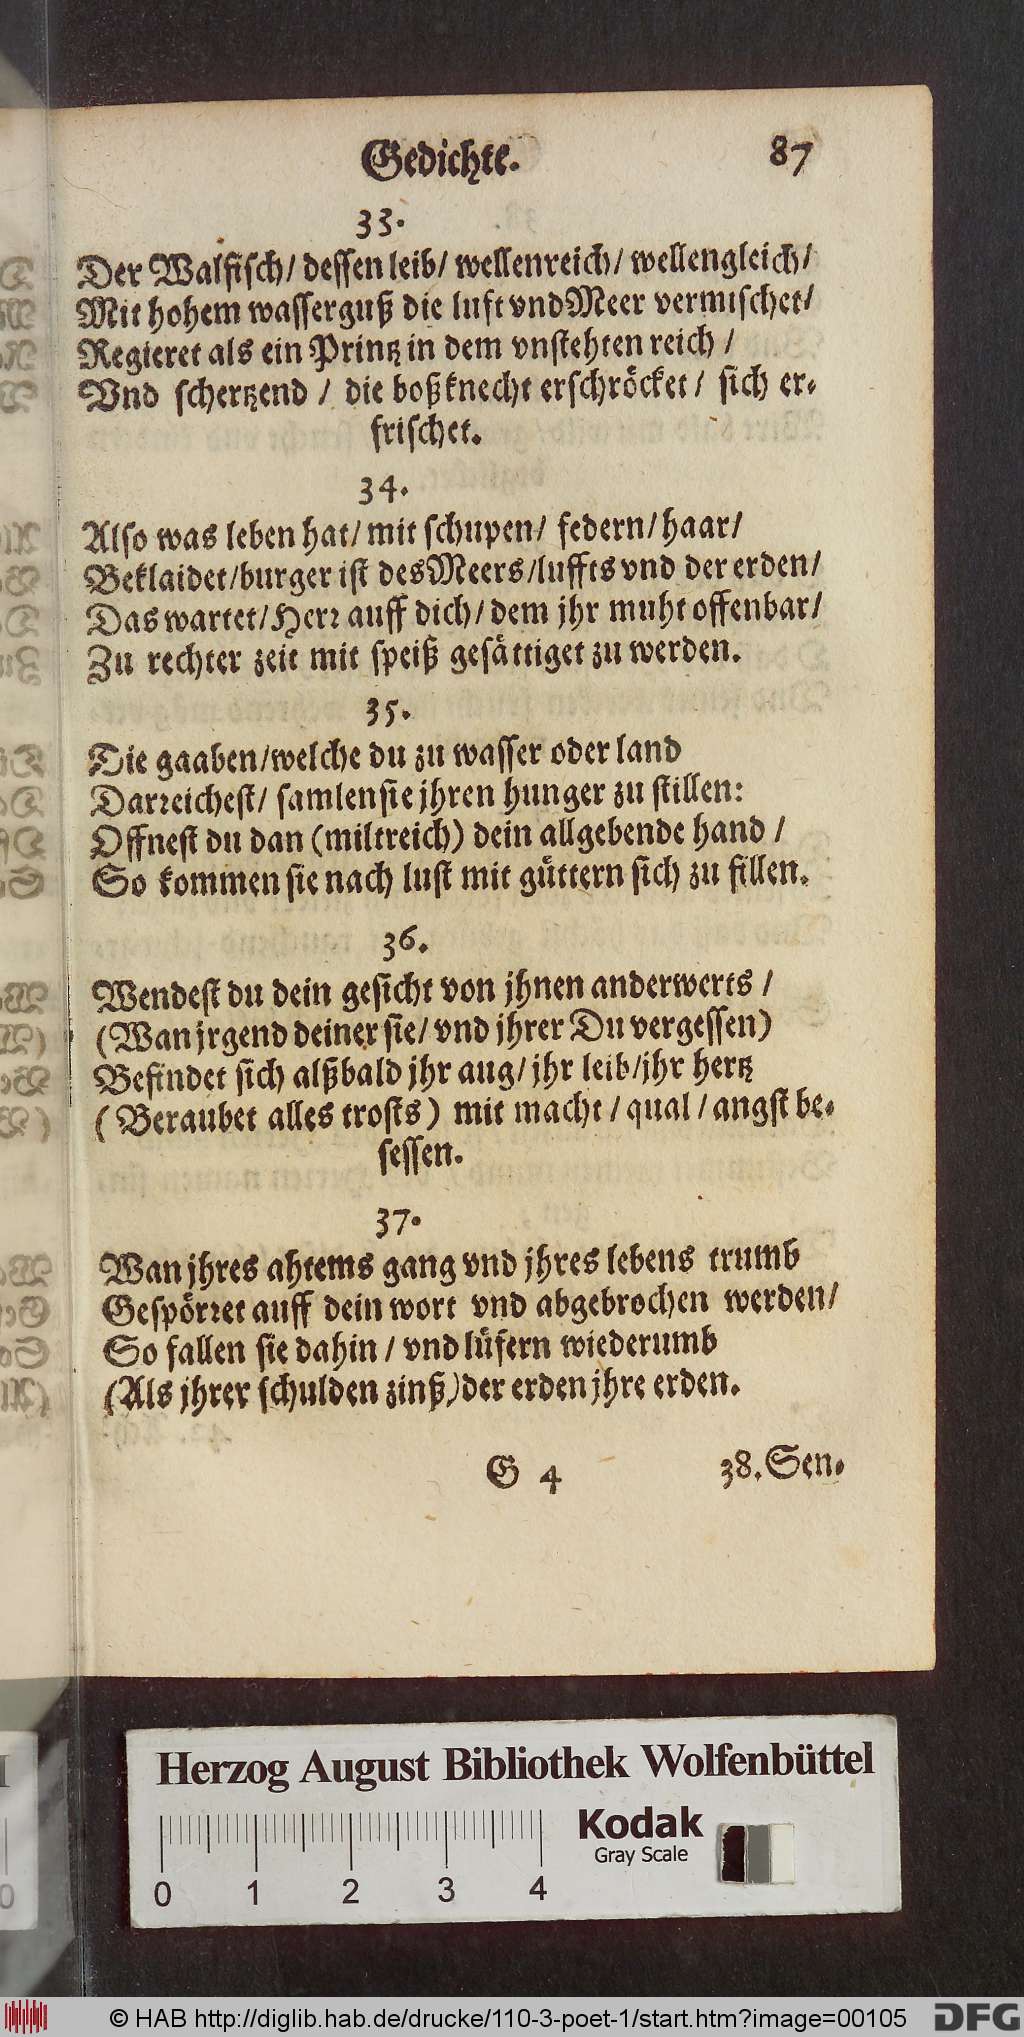 Gedichte. 87
33.
Der Walfisch/ dessen leib/ wellenreich/ wellengleich/
Mit hohem wasserguß die luft vnd Meer vermischet/
Regieret als ein Printz in dem vnstehten reich /
Vnd schertzend / die boßknecht erschröcket / sich er-
frischet.
34.
Also was leben hat/ mit schupen/ federn/ haar/
Beklaidet/burger ist des Meers/luffts vnd der erden/
Das wartet/ Herr auff dich/ dem jhr muht offenbar/
Zu rechter zeit mit speiß gesättiget zu werden.
35.
Die gaaben/welche du zu wasser oder land
Darreichest/ samlen sie jhren hunger zu stillen:
Offnest du dan (miltreich) dein allgebende hand /
So kommen sie nach lust mit güttern sich zu fillen.
36.
Wendest du dein gesicht von jhnen anderwerts /
(Wan jrgend deiner sie/ vnd jhrer Du vergessen)
Befindet sich alßbald jhr aug/ jhr leib/jhr hertz
( Beraubet alles trosts ) mit macht / qual / angst be-
sessen.
37.
Wan jhres ahtems gang vnd jhres lebens trumb
Gespörret auff dein wort vnd abgebrochen werden/
So fallen sie dahin / vnd lüfern wiederumb
(Als jhrer schulden zinß) der erden jhre erden.
G 4 38. Sen-
Herzog August Bibliothek Wolfenbüttel
Kodak
Gray Scale
0 1 2 3 4
© HAB http://diglib.hab.de/drucke/110-3-poet-1/start.htm?image=00105
DFG